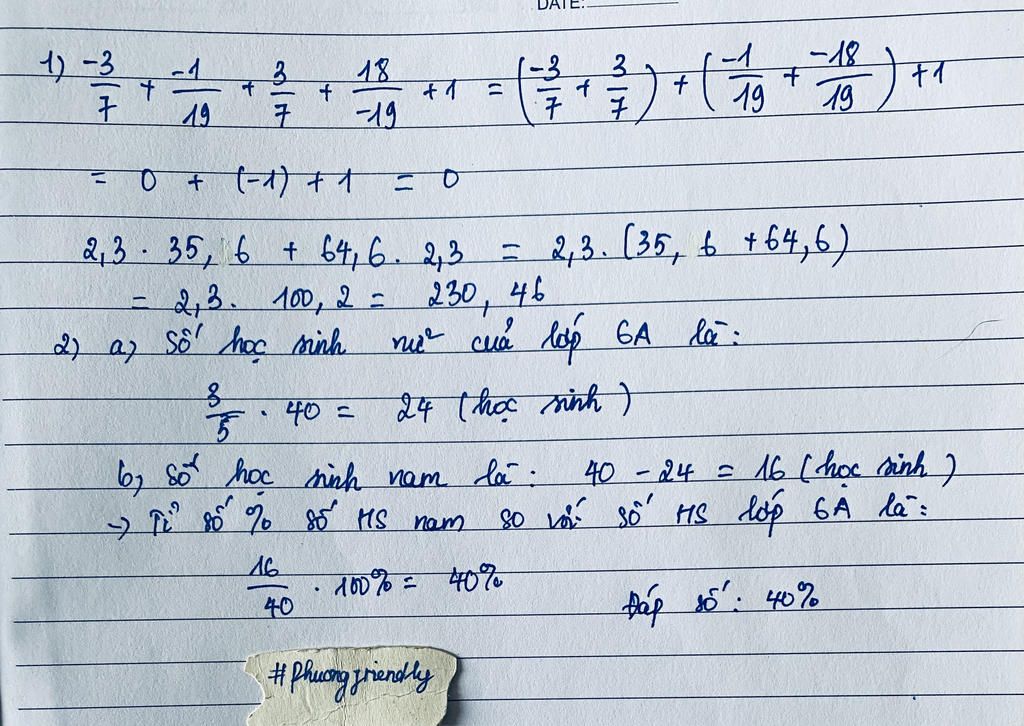 DATE:
1) -3/7 + -1/19 + 3/7 + 18/-19 + 1 = (-3/7 + 3/7) + (-1/19 + -18/19) + 1
= 0 + (-1) + 1 = 0
2,3 . 35,6 + 64,6 . 2,3 = 2,3 . (35,6 + 64,6)
= 2,3 . 100,2 = 230,46
2) a) Số học sinh nữ của lớp 6A là:
3/5 . 40 = 24 (học sinh)
b) Số học sinh nam là: 40 - 24 = 16 (học sinh)
→ Tỉ số % số HS nam so với số HS lớp 6A là:
16/40 . 100% = 40%
Đáp số: 40%
#Phuongfriendly